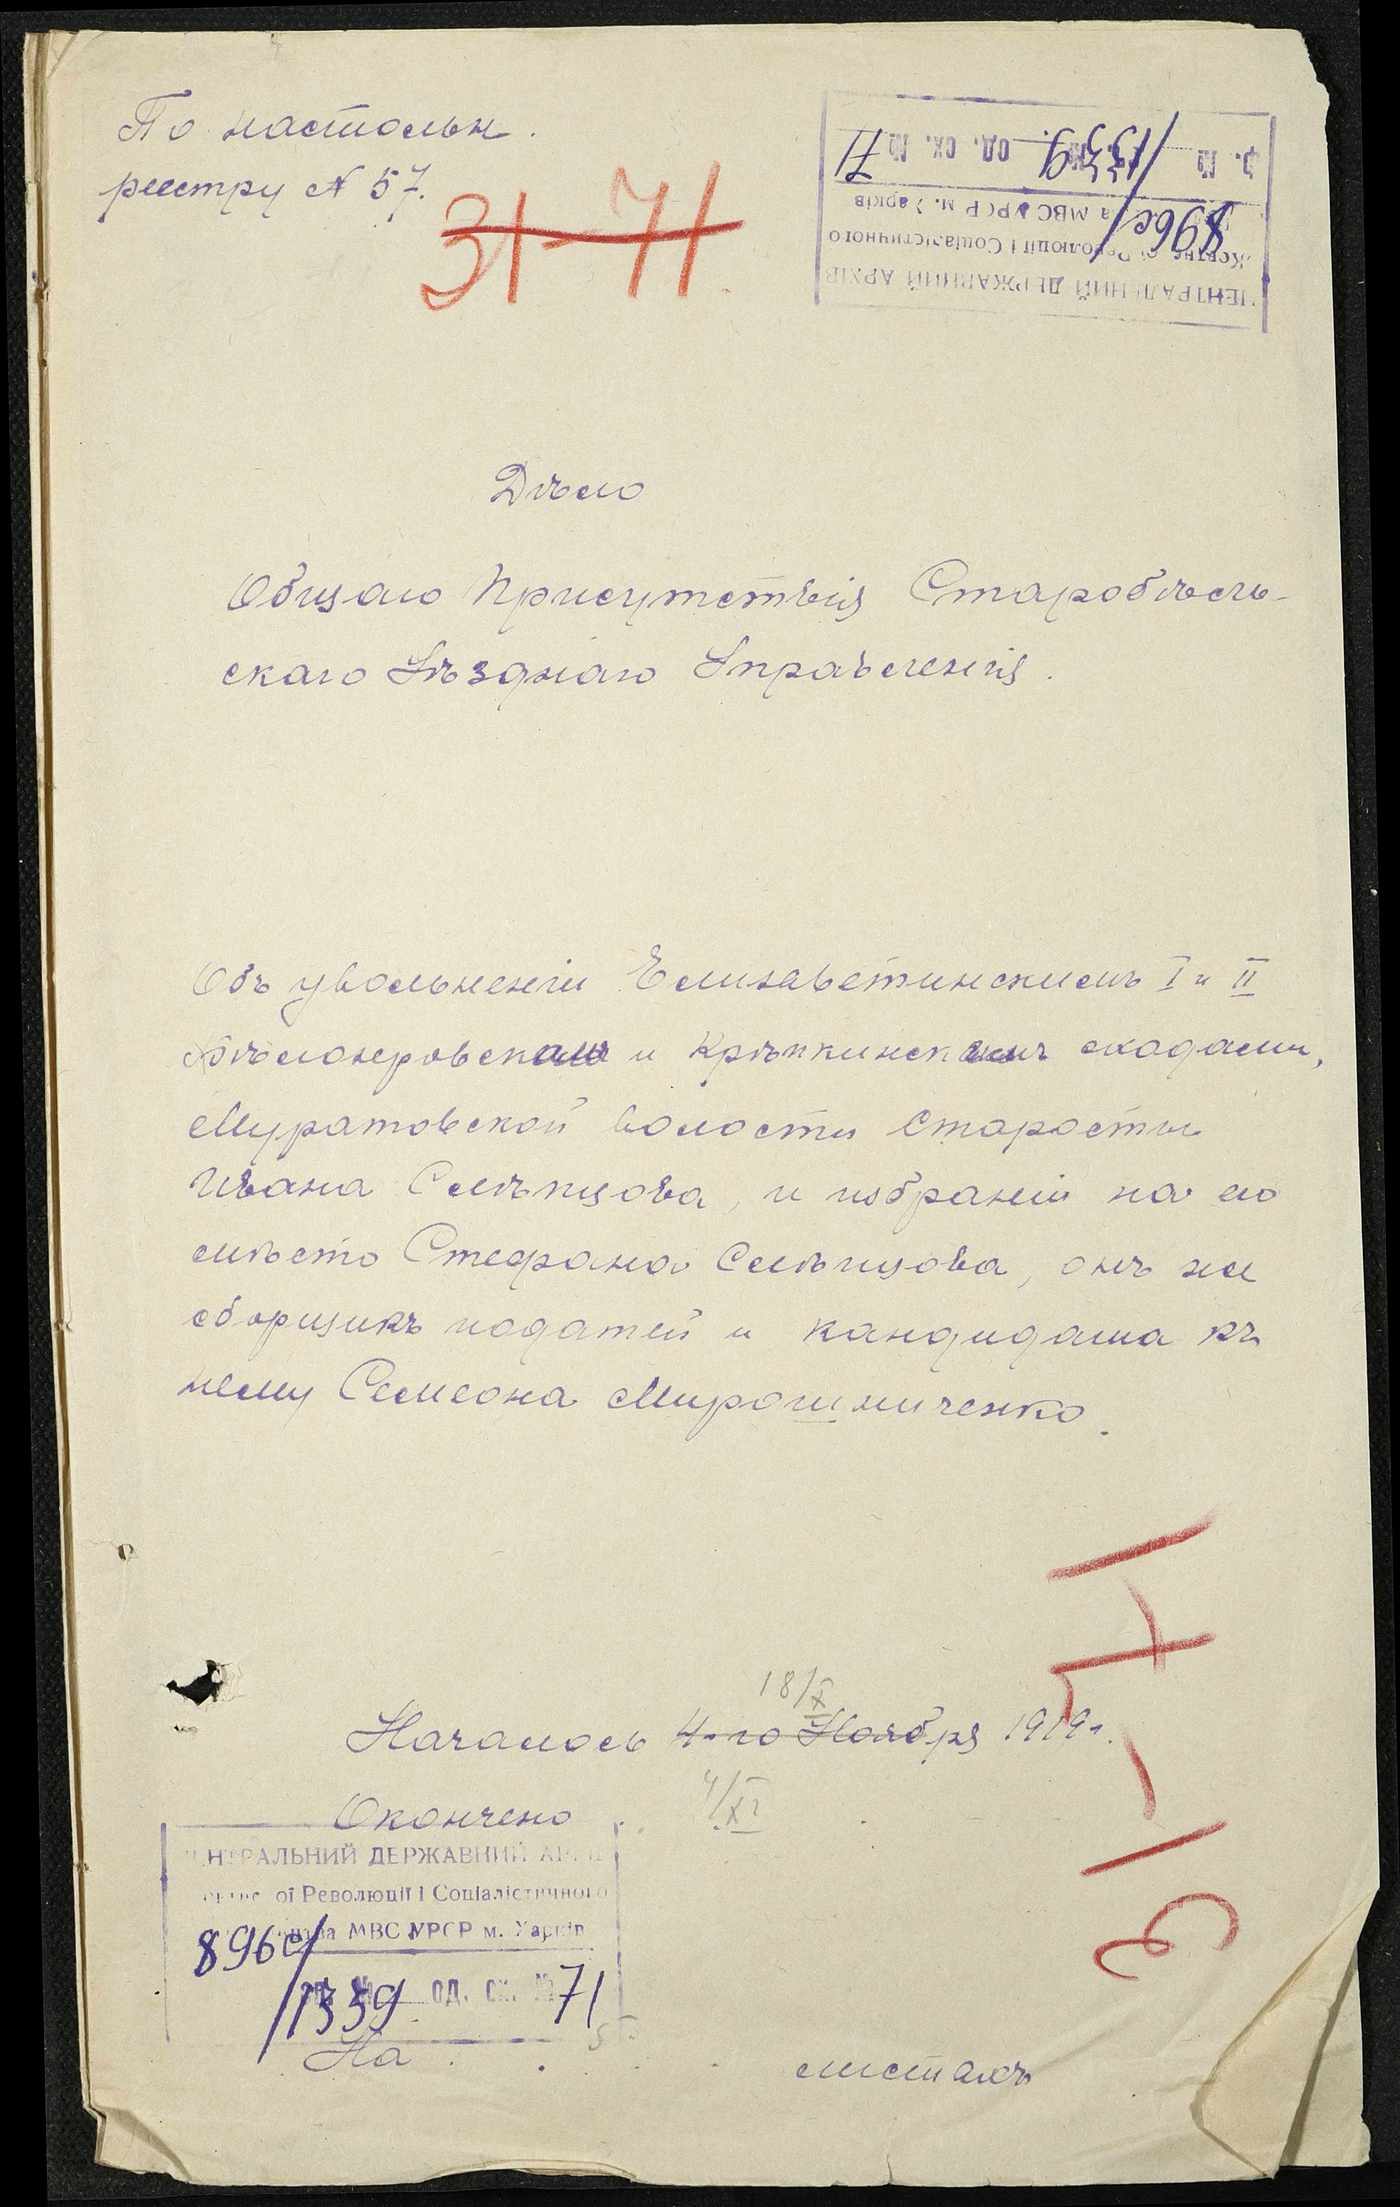 По настольн.
реестру № 57.
31-71
ЦЕНТРАЛЬНИЙ ДЕРЖАВНИЙ АРХІВ
Революції і Соціалістичного
МВС УРСР м. Харків
896с/1339 од. сх. № 71
Дѣло
Общаго Присутствія Старобѣль-
скаго Уѣзднаго Управленія.
Объ увольненіи Елизаветинскимъ I и II
и Крѣпкинскимъ сходами,
Муратовской волости старосты
Ивана Слѣпцова, и избраніи на его
мѣсто Стефана Слѣпцова, онъ же
сборщикъ податей и кандидата къ
нему Семеона Мирошниченко.
18/X
Началось 4-го Ноября 1919 г.
Окончено 4/XI
ЦЕНТРАЛЬНИЙ ДЕРЖАВНИЙ АРХІВ
ої Революції і Соціалістичного
МВС УРСР м. Харків
896с/1339 од. сх. № 71
На 5 листахъ
31-71